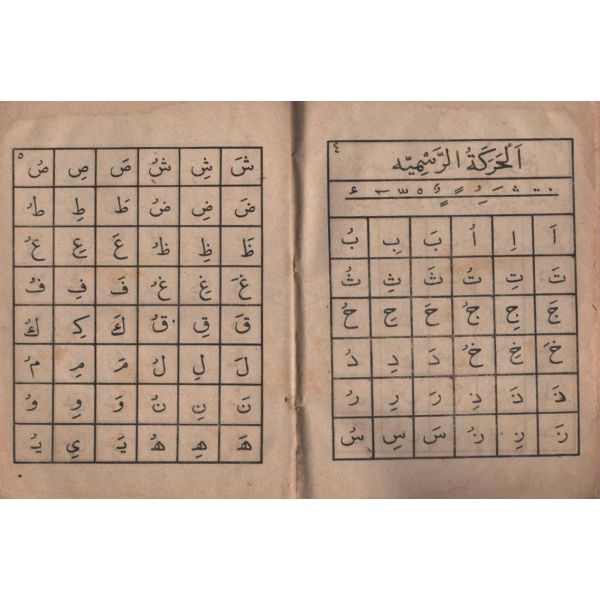 ٤
اَلْحَرَكَةُ الرَّسْمِيّه
اَ اِ اُ بَ بِ بُ
تَ تِ تُ ثَ ثِ ثُ
جَ جِ جُ حَ حِ حُ
خَ خِ خُ دَ دِ دُ
ذَ ذَ ذِ رَ رِ رُ
زَ زِ زُ سَ سِ سُ
٥
شَ شِ شُ صَ صِ صُ
ضَ ضِ ضُ طَ طِ طُ
ظَ ظِ ظُ عَ عِ عُ
غَ غِ غُ فَ فِ فُ
قَ قِ قُ كَ كِ كُ
لَ لِ لُ مَ مِ مُ
نَ نِ نُ وَ وِ وُ
هَ هِ هُ يَ يِ يُ